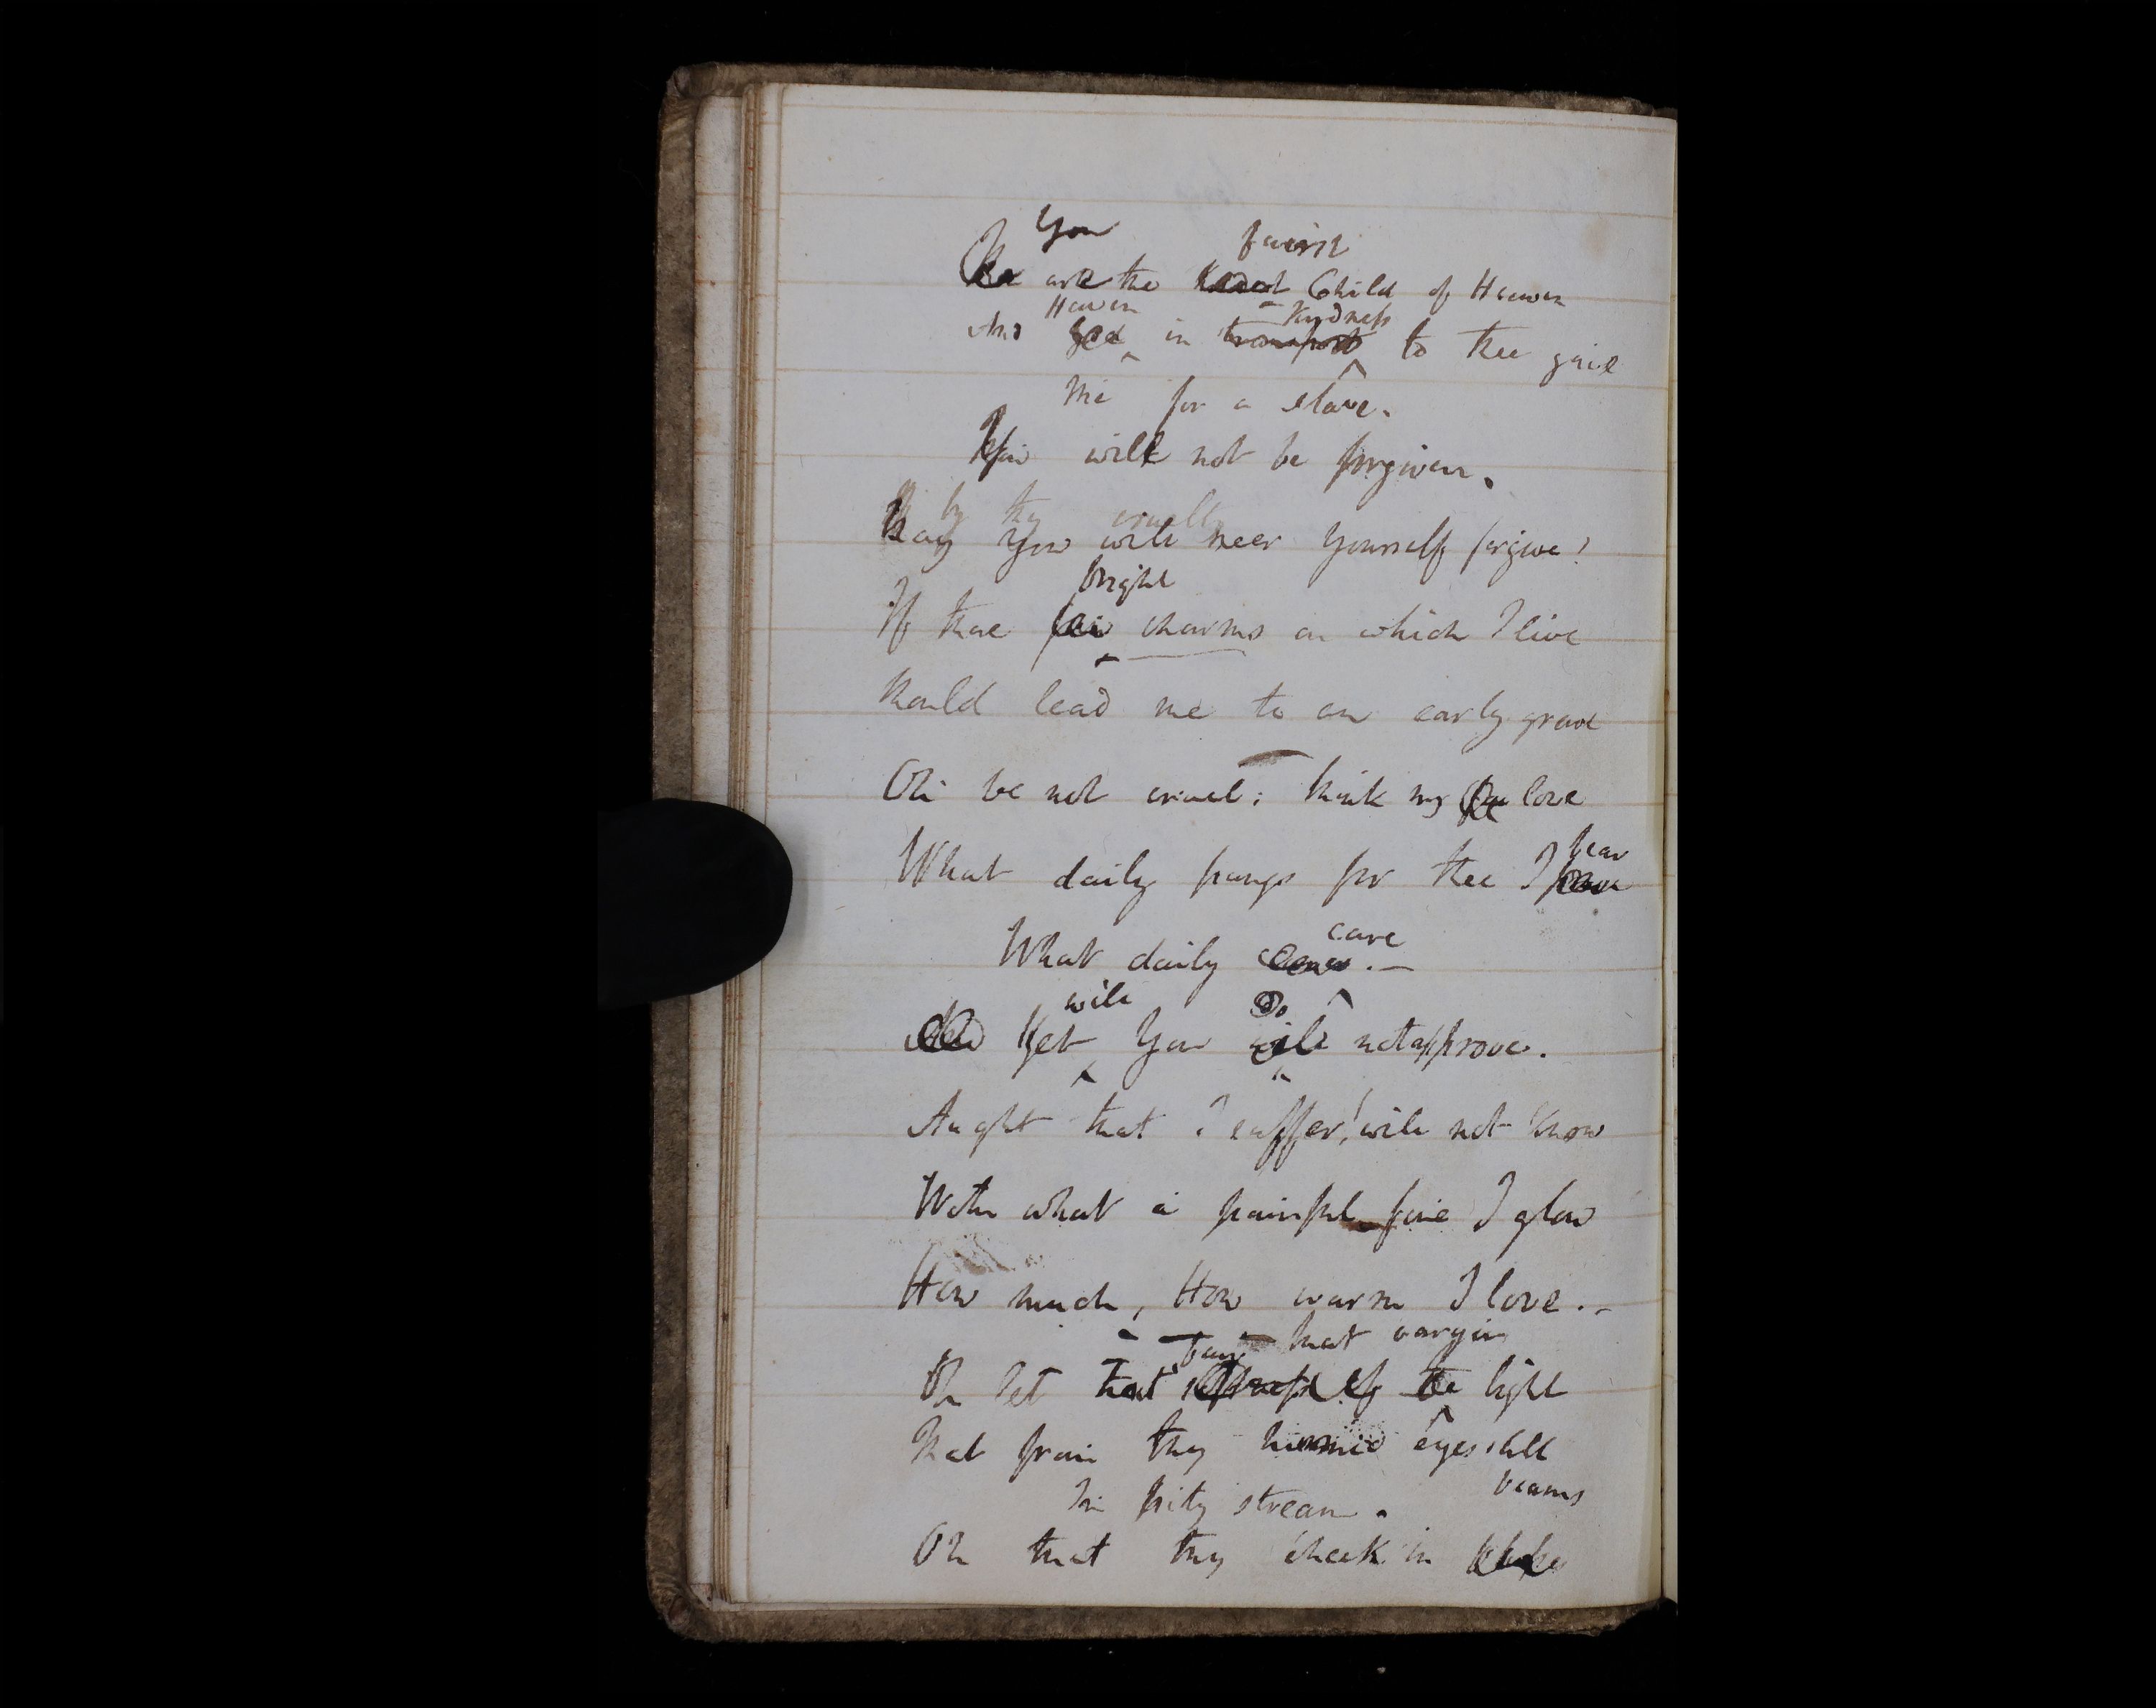 You fairest
are the Child of Heaven
Heaven Kindness
And God in transport to thee gave
me for a slave.
You will not be forgiven.
by thy cruelty
Nay you will neer yourself forgive!
bright
If those fair charms on which I live
Should lead me to an early grave
Oh be not cruel; think my love
What daily pangs for thee I bear
care
What daily .—
will Do
Yet you will not approve.
Aught that I suffer! will not know
With what a painful fire I glow
How much, How warm I love.—
that
Oh let that of the light
That from thy eyes still
beams
In pity stream.
Oh that thy cheek in